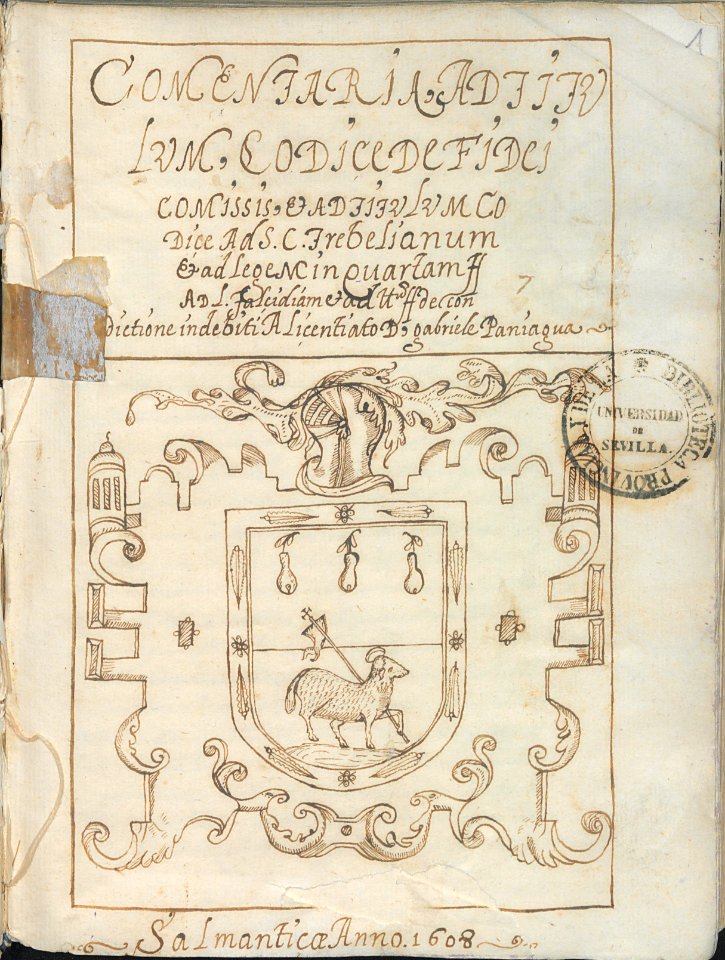 1
COMENTARIA, AD TITV
LVM, CODICE DE FIDEI
COMISSIS, & AD TITVLVM CO
Dice Ad S. C. Trebelianum
& ad legem in quartam ff
AD L. falcidiam & ad ttº ff de con
dictione indebiti A Licentiato D, gabriele Paniagua
BIBLIOTECA PROVINCIAL Y DE LA
UNIVERSIDAD
DE
SEVILLA.
Salmanticæ Anno. 1608